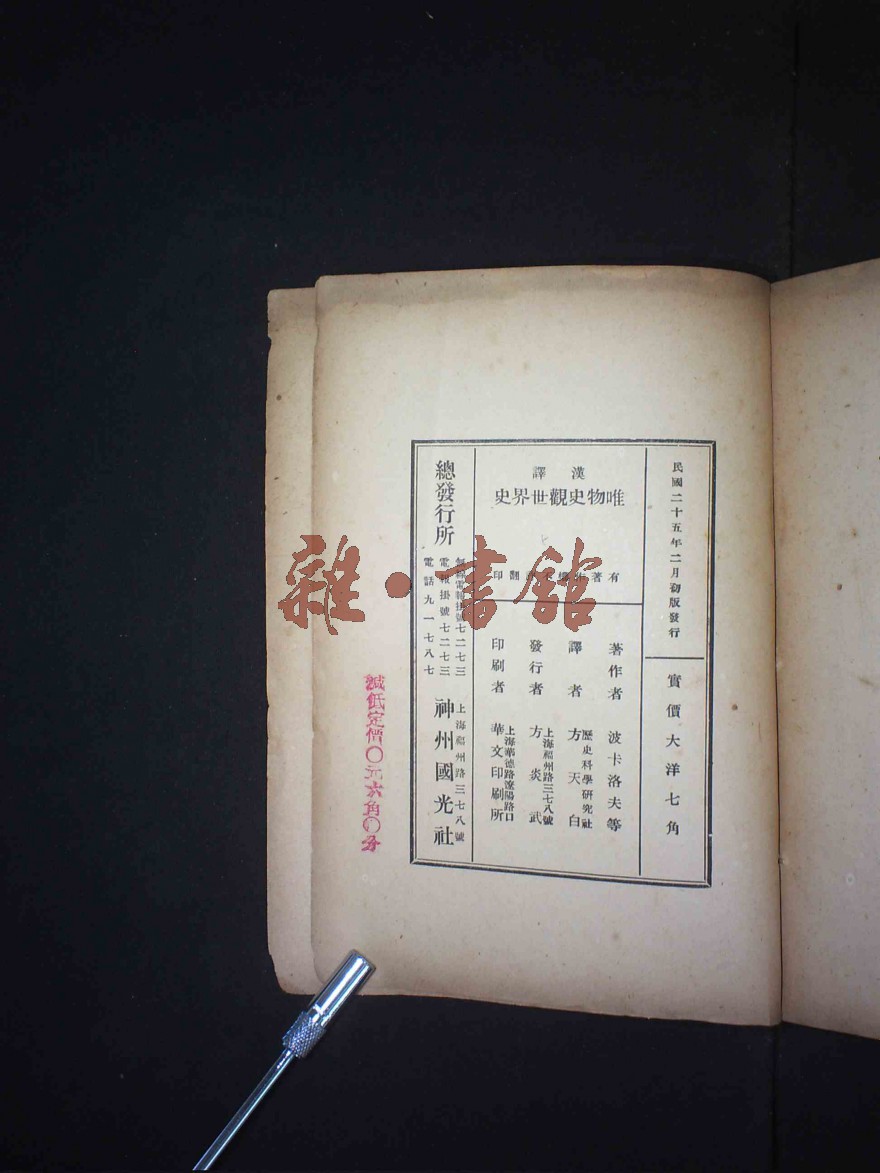 民國二十五年二月初版發行
實價大洋七角
漢譯
唯物史觀世界史
有著 翻印
著作者 波卡洛夫等
譯者 歷史科學研究社
方天白
發行者 上海福州路三七八號
方炎武
印刷者 上海華德路遼陽路口
華文印刷所
總發行所
無線電報掛號七二七三
電報掛號七二七三
電話九一七八七
上海福州路三七八號
神州國光社
減低定價〇元六角〇分
雜·書館